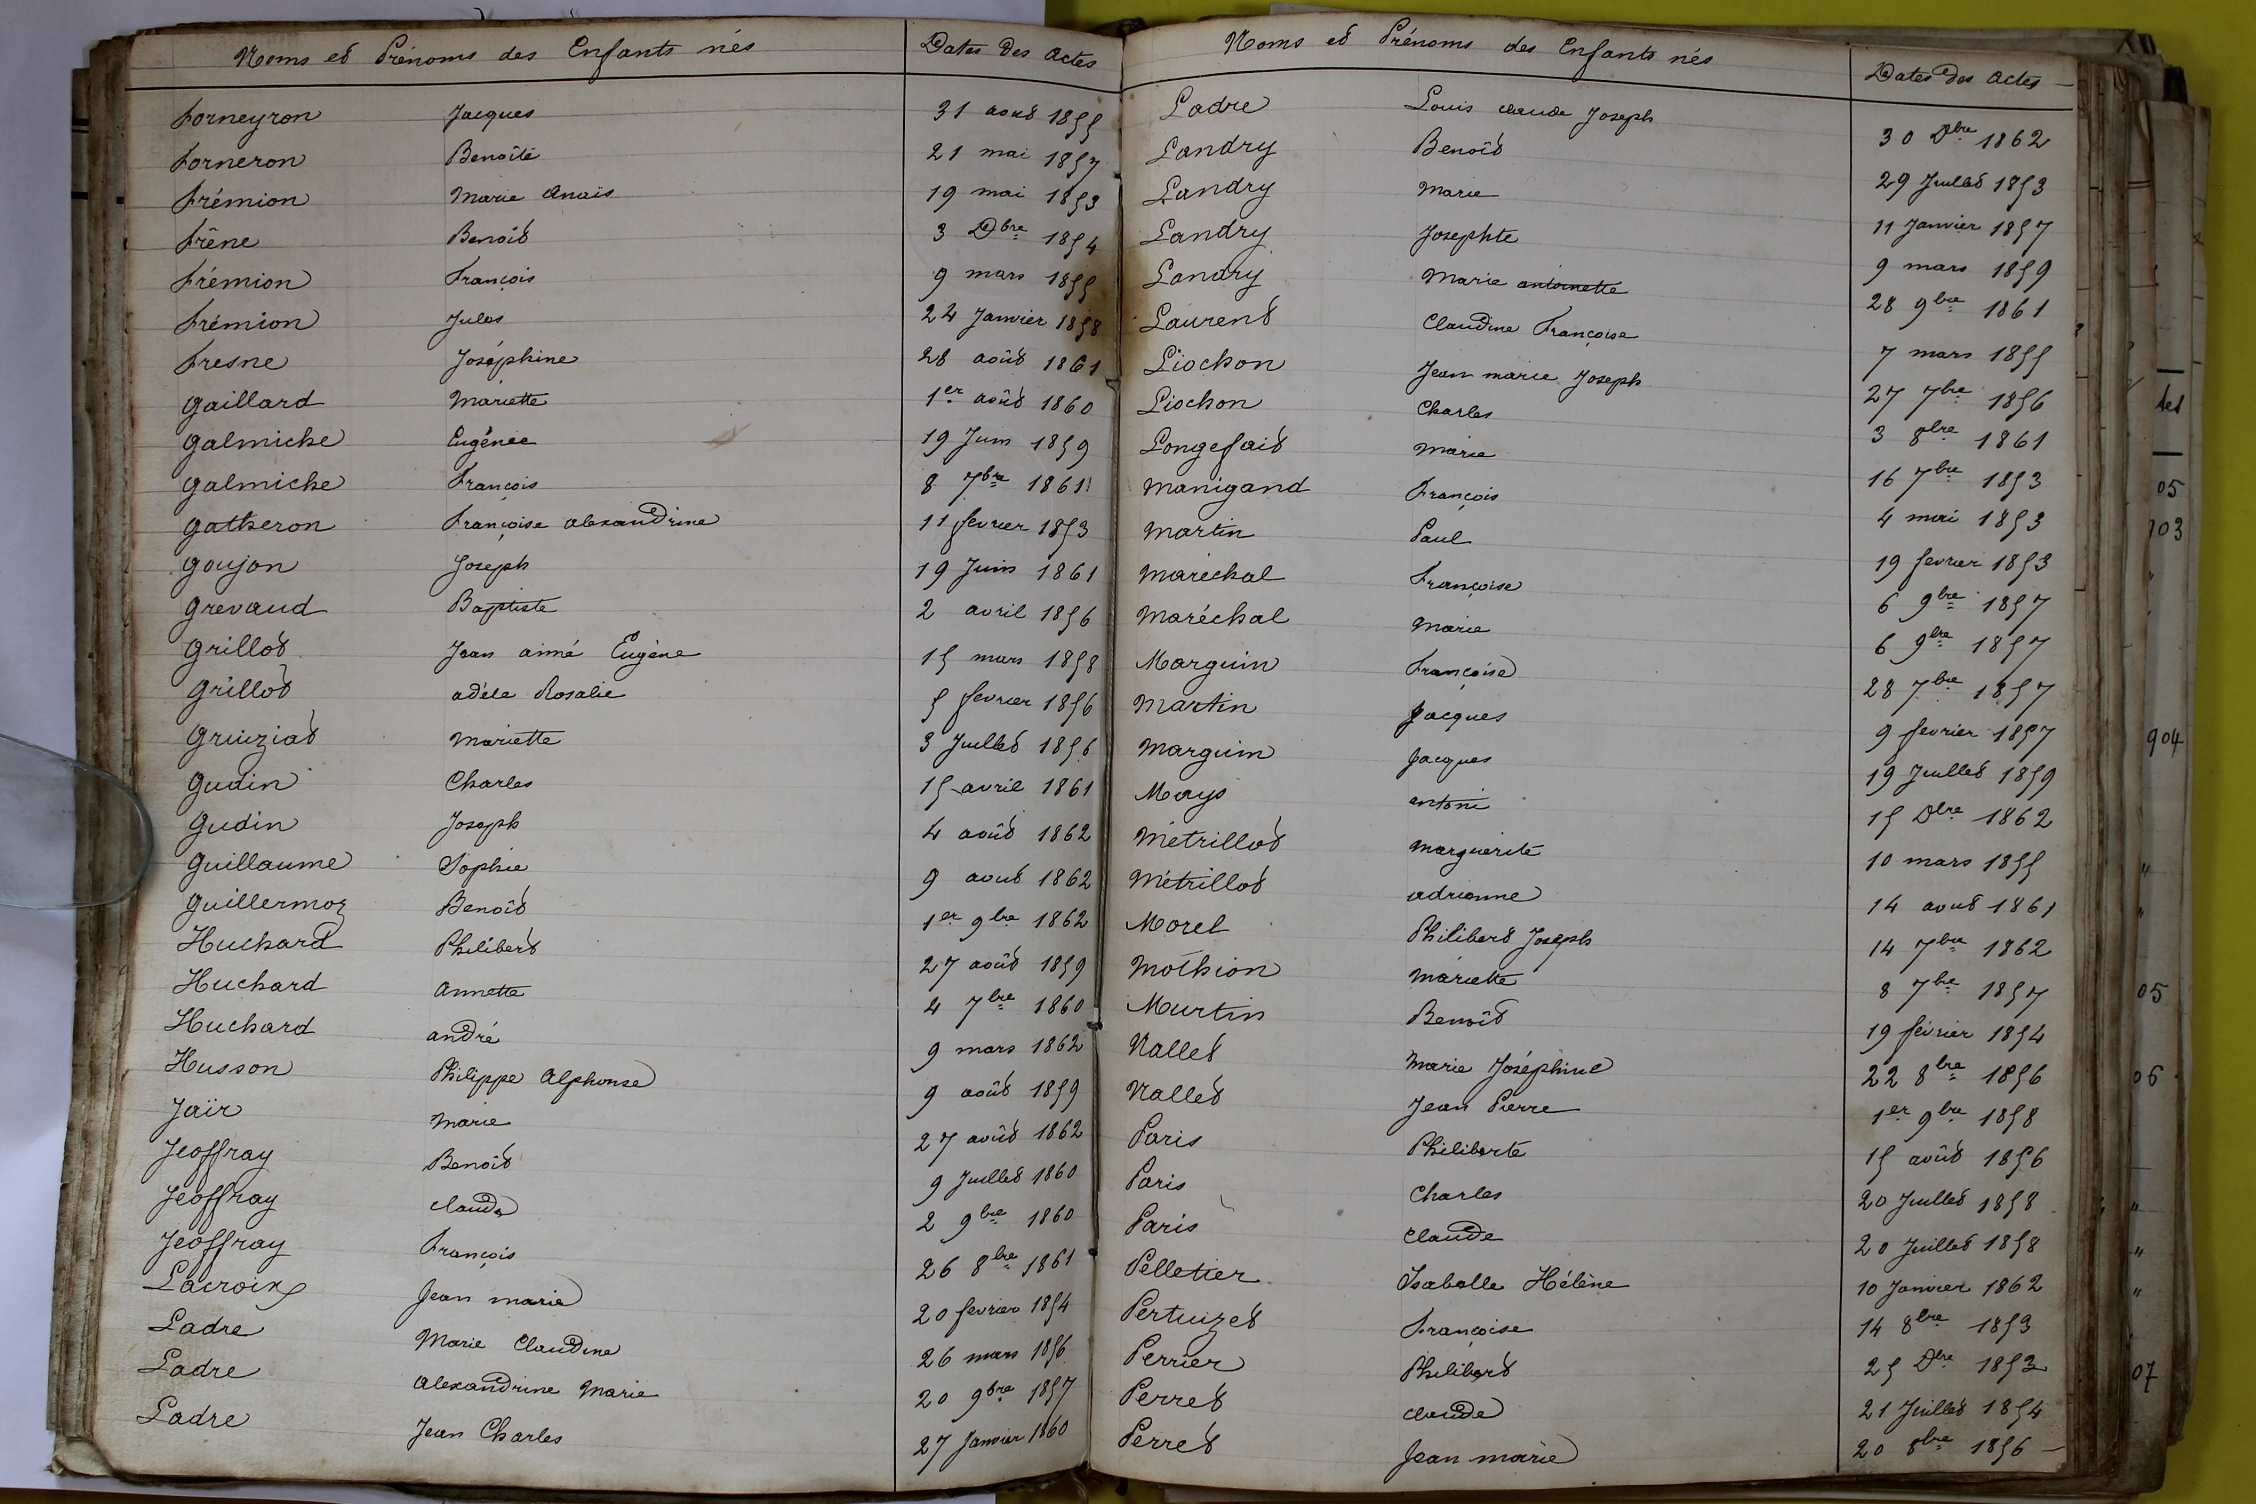 Noms et Prénoms des Enfants nés Dates des Actes
Forneyron Jacques 31 août 1855
Forneron Benoîte 21 mai 1857
Frémion Marie Anaïs 19 mai 1853
Frêne Benoît 3 Xbre 1854
Frémion François 9 mars 1855
Frémion Jules 24 Janvier 1858
Fresne Joséphine 28 août 1861
Gaillard Mariette 1er août 1860
Galmiche Eugénie 19 Juin 1859
Galmiche François 8 7bre 1861
Gatheron Françoise alexandrine 11 fevrier 1853
Goujon Joseph 19 Juin 1861
Grevaud Baptiste 2 avril 1856
Grillot Jean aimé Eugène 15 mars 1858
Grillot adèle Rosalie 5 fevrier 1856
Gruiziat Mariette 3 Juillet 1856
Gudin Charles 15 avril 1861
Gudin Joseph 4 août 1862
Guillaume Sophie 9 aout 1862
Guillermoz Benoît 1er 9bre 1862
Huchard Philibert 27 août 1859
Huchard annette 4 7bre 1860
Huchard andré 9 mars 1862
Husson Philippe Alphonse 9 août 1859
Jaïr Marie 27 août 1862
Jeoffray Benoît 9 Juillet 1860
Jeoffray claude 2 9bre 1860
Jeoffray François 26 8bre 1861
Lacroix Jean marie 20 fevrier 1854
Ladre Marie Claudine 26 mars 1856
Ladre alexandrine Marie 20 9bre 1857
Ladre Jean Charles 27 Janvier 1860
Noms et Prénoms des Enfants nés Dates des Actes
Ladre Louis claude Joseph 30 Xbre 1862
Landry Benoît 29 Juillet 1853
Landry Marie 11 Janvier 1857
Landry Josephte 9 mars 1859
Landry Marie antoinette 28 9bre 1861
Laurent Claudine Françoise 7 mars 1855
Liochon Jean marie Joseph 27 7bre 1856
Liochon Charles 3 8bre 1861
Longefait Marie 16 7bre 1853
Manigand François 4 mai 1853
Martin Paul 19 fevrier 1853
Maréchal Françoise 6 9bre 1857
Maréchal Marie 6 9bre 1857
Marguin Françoise 28 7bre 1857
Martin Jacques 9 fevrier 1857
Marguin Jacques 19 Juillet 1859
Mays antoni 15 Xbre 1862
Métrillot Marguerite 10 mars 1855
Métrillot adrienne 14 aout 1861
Morel Philibert Joseph 14 7bre 1862
Mothion Mariette 8 7bre 1857
Murtin Benoît 19 février 1854
Nallet Marie Joséphine 22 8bre 1856
Nallet Jean Pierre 1er 9bre 1858
Paris Philiberte 15 août 1856
Paris Charles 20 Juillet 1858
Paris Claude 20 Juillet 1858
Pelletier Isabelle Hélène 10 Janvier 1862
Pertuizet Françoise 14 8bre 1853
Perrier Philibert 25 Xbre 1853
Perret claude 21 Juillet 1854
Perret Jean marie 20 8bre 1856
05
903
904
05
06
07